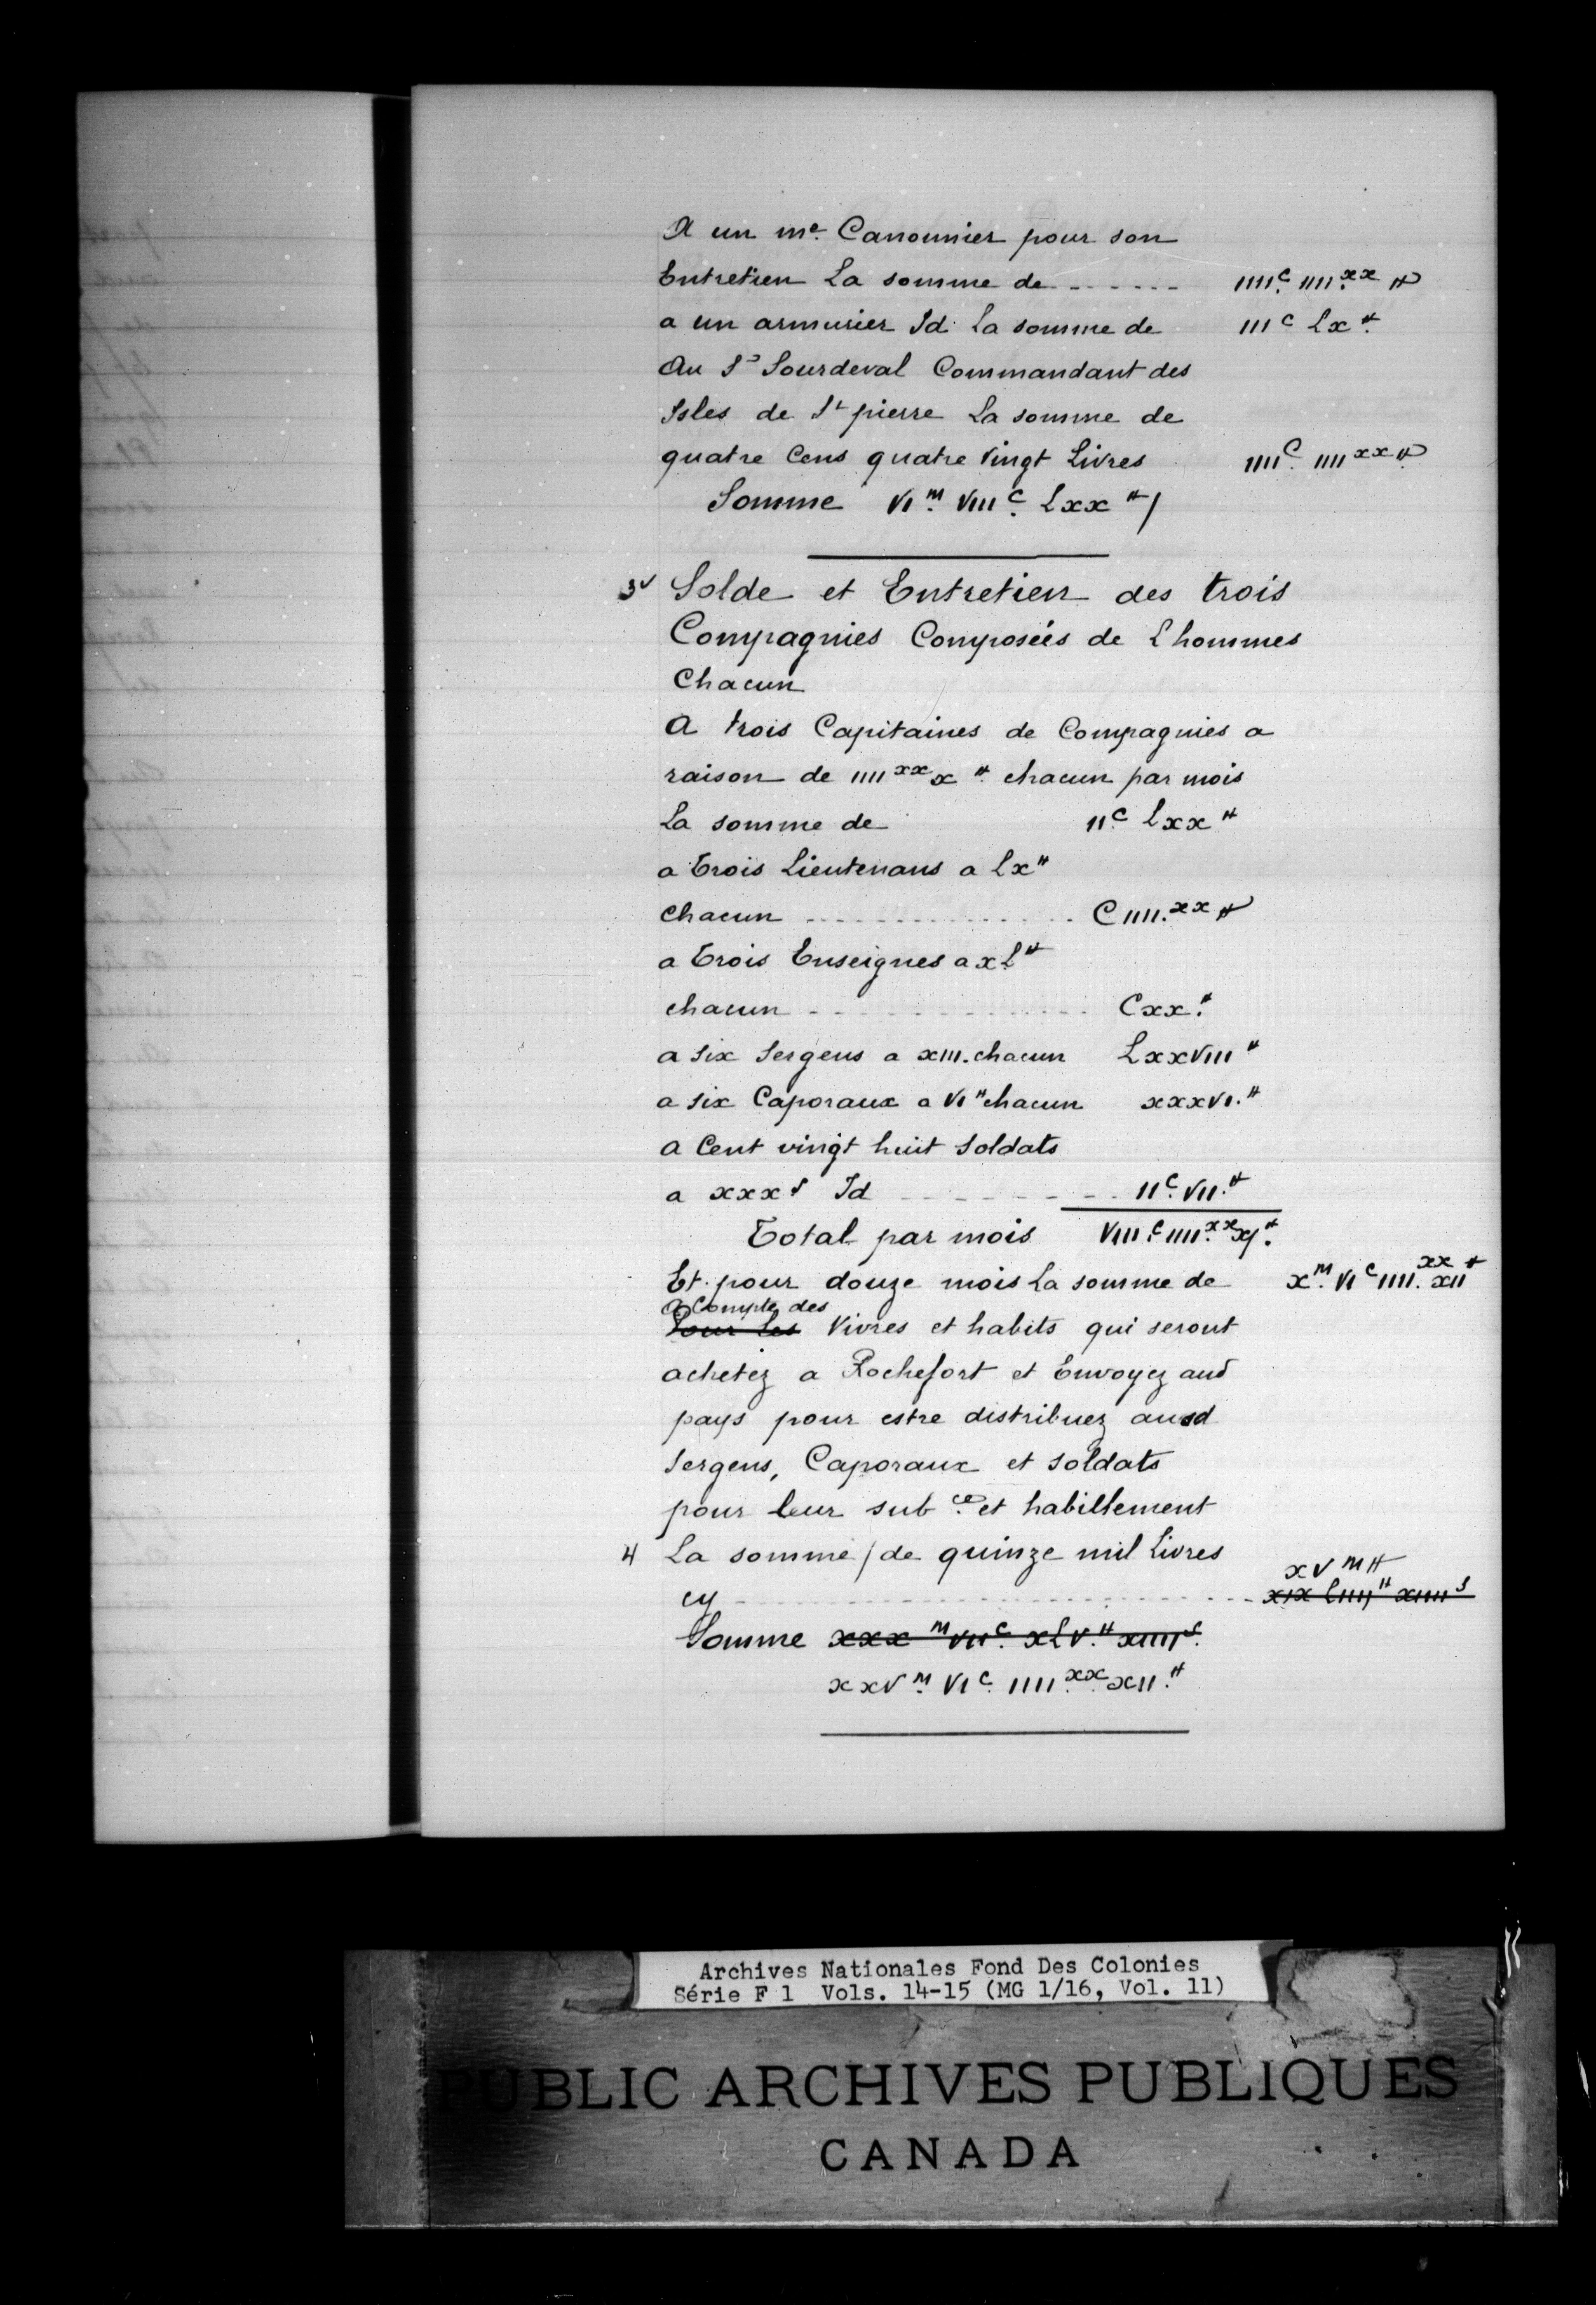 A un me. Canonnier pour son
Entretien La somme de ------ IIIIC. IIII.xx ₶
a un armurier Id. La somme de IIIC Lx ₶.
Au Sr Sourdeval Commandant des
Isles de St pierre La somme de
quatre Cens quatre Vingt Livres IIIIC. IIIIxx ₶.
Somme VIM. VIIIC. Lxx ₶/
3v Solde et Entretien des trois
Compagnies Composées de L hommes
Chacun
A trois Capitaines de Compagnies a
raison de IIIIxx x ₶. chacun par mois
La somme de IIC. Lxx ₶
a trois Lieutenans a Lx ₶
chacun -------------- C IIII.xx ₶
a trois Enseignes a xL ₶
chacun -------------- Cxx.₶
a six Sergens a xIII. chacun LxxVIII ₶
a six Caporaux a VI ₶ chacun xxxVI.₶
A Cent vingt huit Soldats
a xxx s Id -------- IIC. VII.₶
Total par mois VIIIC. IIII.xx xj.₶
Et pour douze mois La somme de xM. VIC IIII.xx xII ₶
a Compte des
Pour Les Vivres et habits qui seront
achetez a Rochefort et Envoyez aud
pays pour estre distribuez ausd
Sergens, Caporaux et Soldats
pour leur sub.ce et habillement
4 La somme / de quinze mil Livres
xVM ₶
cy -------------------- xIx LIIII ₶ xIIII s
Somme xxx M VIIC. xLV.₶ xIIII s.
xxVM. VIC. IIII.xx. xII.₶
Archives Nationales Fond Des Colonies
Série F 1 Vols. 14-15 (MG 1/16, Vol. 11)
PUBLIC ARCHIVES PUBLIQUES
CANADA